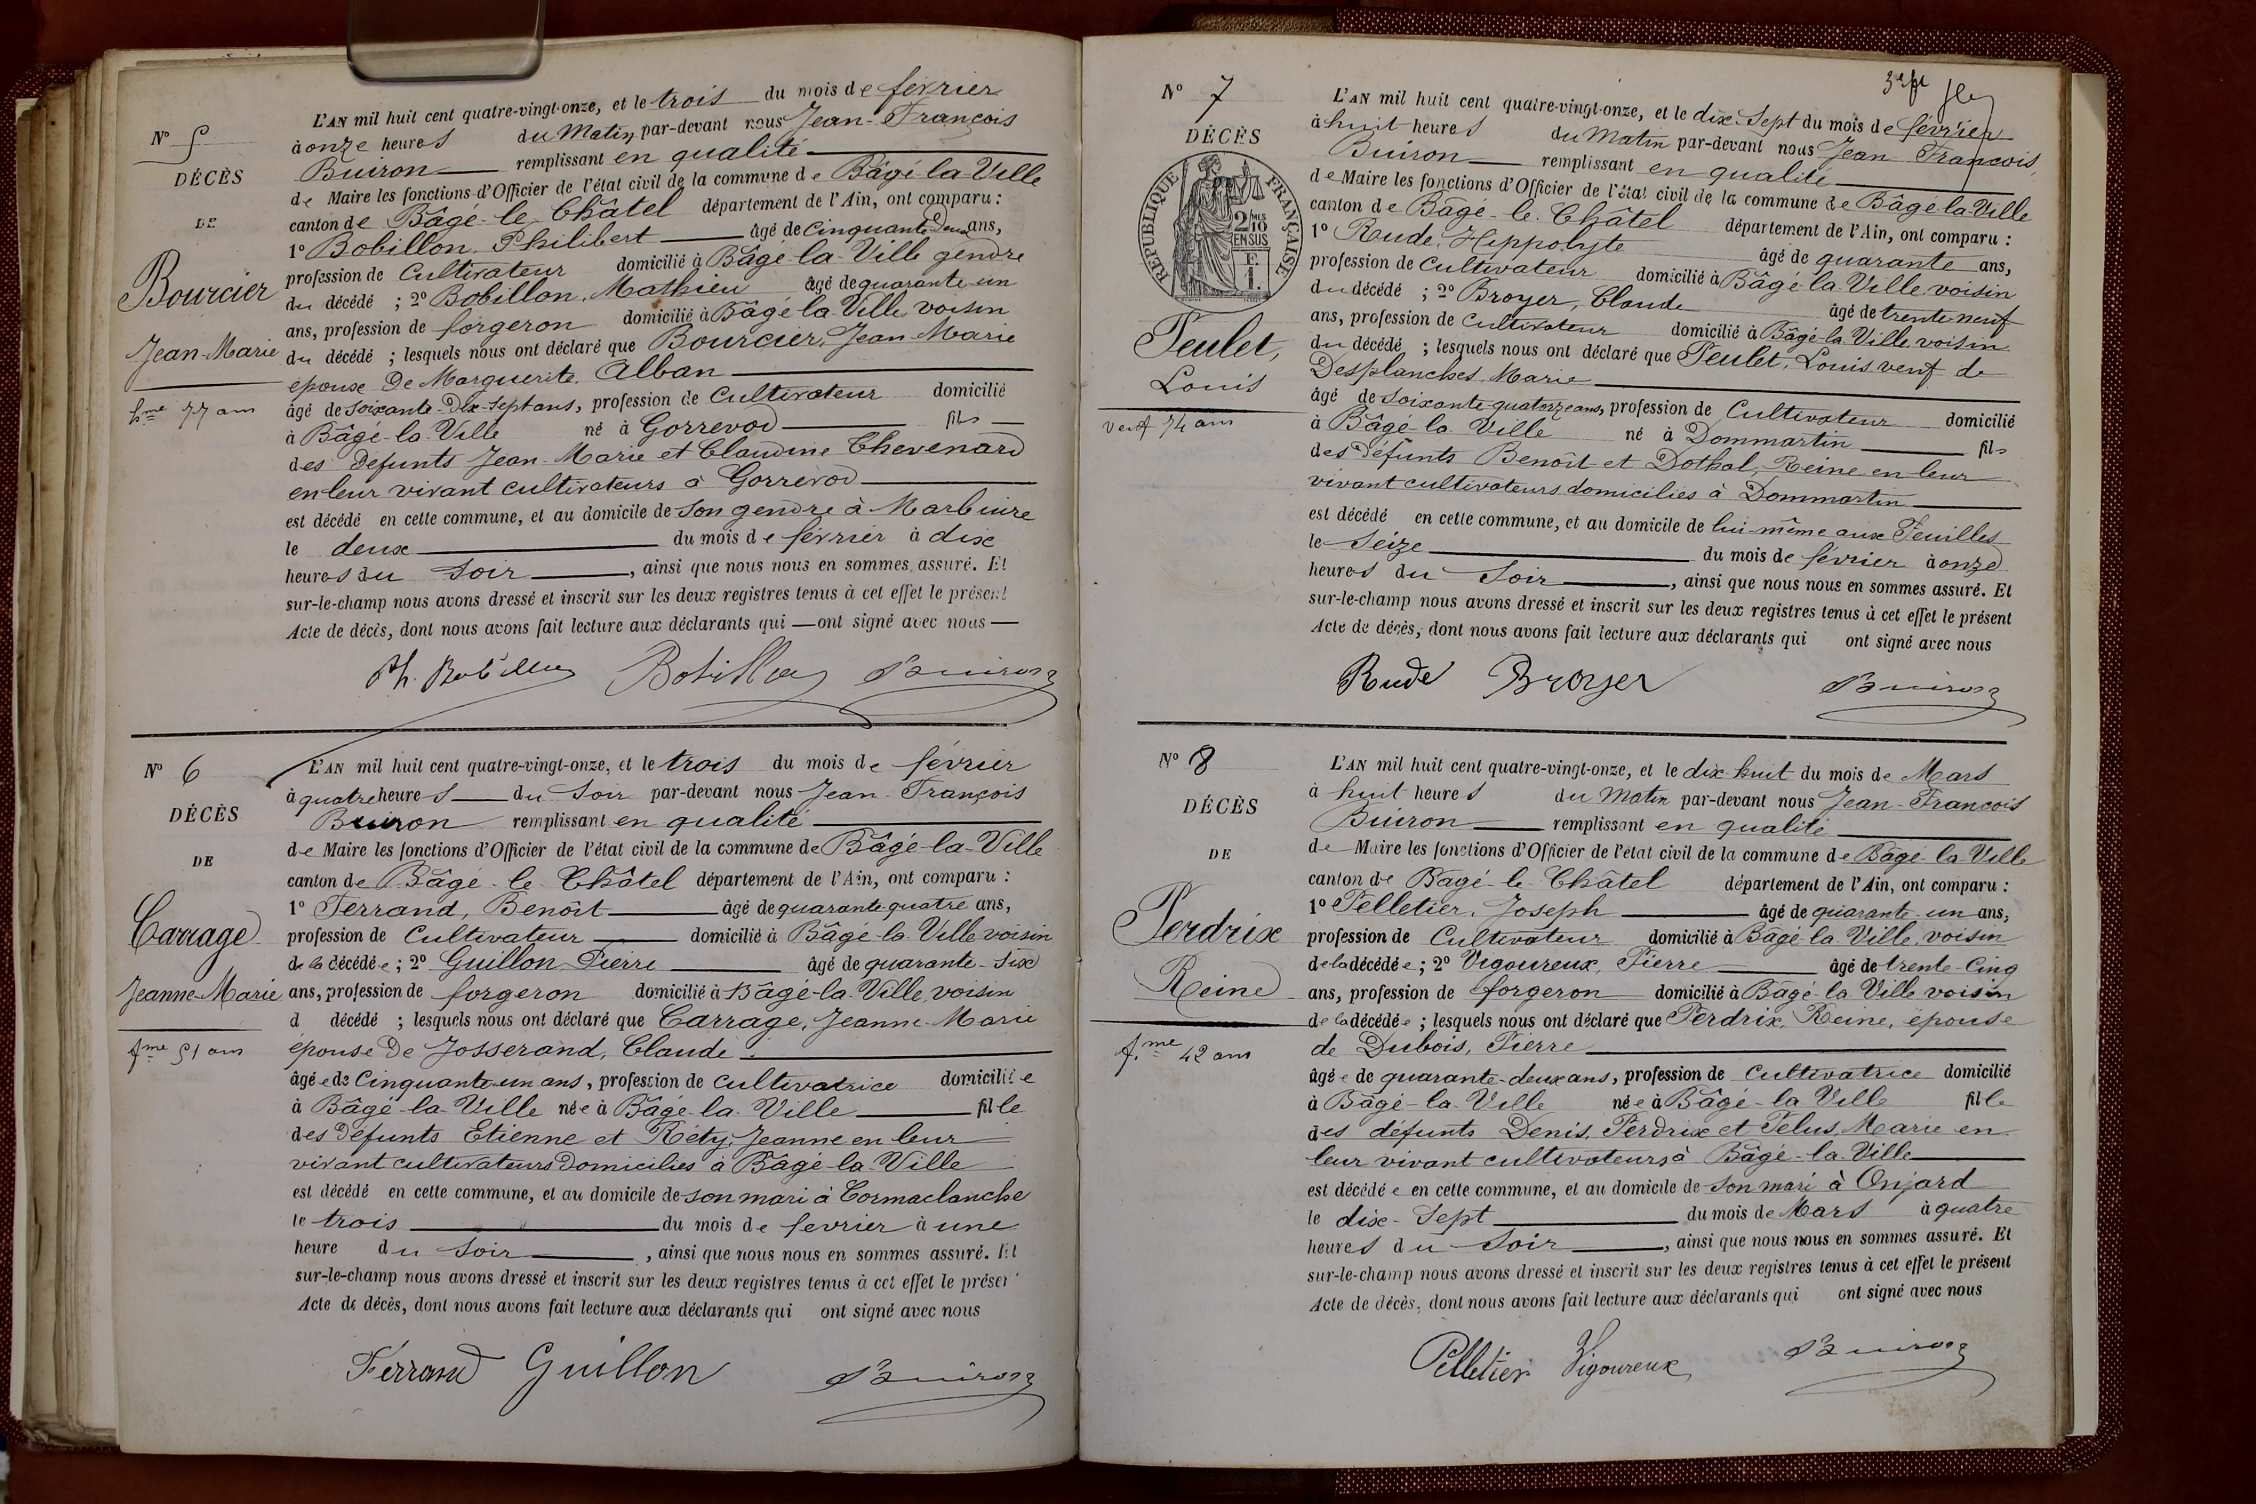 N° 5
DÉCÈS
DE
Bourcier
Jean-Marie
hme 77 ans
L'AN mil huit cent quatre-vingt-onze, et le trois du mois de février
à onze heures du Matin, par-devant nous Jean-François
Buiron remplissant en qualité
de Maire les fonctions d'Officier de l'état civil de la commune de Bâgé-la-Ville
canton de Bâgé-le-Châtel département de l'Ain, ont comparu :
1° Bobillon, Philibert âgé de cinquante deux ans,
profession de Cultivateur domicilié à Bâgé-la-Ville gendre
du décédé ; 2° Bobillon, Mathieu âgé de quarante-un
ans, profession de forgeron domicilié à Bâgé-la-Ville voisin
du décédé ; lesquels nous ont déclaré que Bourcier, Jean-Marie
epoux De Marguerite Alban
âgé de soixante-Dix-Sept ans, profession de Cultivateur domicilié
à Bâgé-la-Ville né à Gorrevod fils
des Défunts Jean-Marie et Claudine Chevenard
en leur vivant cultivateurs à Gorrevod
est décédé en cette commune, et au domicile de son gendre à Marbuire
le deux du mois de février à dix
heures du Soir, ainsi que nous nous en sommes assuré. Et
sur-le-champ nous avons dressé et inscrit sur les deux registres tenus à cet effet le présent
Acte de décès, dont nous avons fait lecture aux déclarants qui ont signé avec nous
Ph. Bobillon Bobillon Buiron
N° 6
DÉCÈS
DE
Carrage
Jeanne-Marie
fme 51 ans
L'AN mil huit cent quatre-vingt-onze, et le trois du mois de février
à quatre heures du Soir par-devant nous Jean-François
Buiron remplissant en qualité
de Maire les fonctions d'Officier de l'état civil de la commune de Bâgé-la-Ville
canton de Bâgé-le-Châtel département de l'Ain, ont comparu :
1° Ferrand, Benoît âgé de quarante-quatre ans,
profession de Cultivateur domicilié à Bâgé-la-Ville voisin
de la décédée ; 2° Guillon, Pierre âgé de quarante-Six
ans, profession de forgeron domicilié à Bâgé-la-Ville, voisin
d décédé ; lesquels nous ont déclaré que Carrage, Jeanne-Marie
épouse De Josserand, Claude
âgée de Cinquante-un ans, profession de cultivatrice domiciliée
à Bâgé-la-Ville née à Bâgé-la-Ville fille
des Défunts Etienne et Réty, Jeanne en leur
vivant cultivateurs Domiciliés à Bâgé-la-Ville
est décédé en cette commune, et au domicile de son mari à Cormaclanche
le trois du mois de février à une
heure du Soir, ainsi que nous nous en sommes assuré. Et
sur-le-champ nous avons dressé et inscrit sur les deux registres tenus à cet effet le présen
Acte de décès, dont nous avons fait lecture aux déclarants qui ont signé avec nous
Ferrand Guillon Buiron
N° 7
DÉCÈS
RÉPUBLIQUE FRANÇAISE
2/10 MES
EN SUS
F.
1.
Peulet,
Louis
veuf 74 ans
L'AN mil huit cent quatre-vingt-onze, et le dix-Sept du mois de février
à huit heures du Matin par-devant nous Jean François,
Buiron remplissant en qualité
de Maire les fonctions d'Officier de l'état civil de la commune de Bâgé-la-Ville
canton de Bâgé-le-Châtel département de l'Ain, ont comparu :
1° Rude, Hippolyte âgé de quarante ans,
profession de Cultivateur domicilié à Bâgé-la-Ville, voisin
du décédé ; 2° Broyer, Claude âgé de trente-neuf
ans, profession de Cultivateur domicilié à Bâgé-la-Ville, voisin
du décédé ; lesquels nous ont déclaré que Peulet, Louis veuf de
Desplanches, Marie
âgé de soixante-quatorze ans, profession de Cultivateur domicilié
à Bâgé-la-Ville né à Dommartin fils
des Défunts Benoît et Dothal, Reine en leur
vivant cultivateurs domiciliés à Dommartin
est décédé en cette commune, et au domicile de lui-même aux Feuilles
le Seize du mois de février à onze
heures du Soir, ainsi que nous nous en sommes assuré. Et
sur-le-champ nous avons dressé et inscrit sur les deux registres tenus à cet effet le présent
Acte de décès, dont nous avons fait lecture aux déclarants qui ont signé avec nous
Rude Broyer Buiron
N° 8
DÉCÈS
DE
Perdrix
Reine
fme 42 ans
L'AN mil huit cent quatre-vingt-onze, et le dix-huit du mois de Mars
à huit heures du Matin par-devant nous Jean-François
Buiron remplissant en qualité
de Maire les fonctions d'Officier de l'état civil de la commune de Bâgé-la-Ville
canton de Bâgé-le-Châtel département de l'Ain, ont comparu :
1° Pelletier, Joseph âgé de quarante-un ans,
profession de Cultivateur domicilié à Bâgé-la-Ville, voisin
de la décédée ; 2° Vigoureux, Pierre âgé de trente-Cinq
ans, profession de forgeron domicilié à Bâgé-la-Ville voisin
de la décédée ; lesquels nous ont déclaré que Perdrix, Reine, épouse
de Dubois, Pierre
âgée de quarante-deux ans, profession de Cultivatrice domicilié
à Bâgé-la-Ville née à Bâgé-la-Ville fille
des défunts Denis, Perdrix et Pelus, Marie en
leur vivant cultivateurs à Bâgé-la-Ville
est décédée en cette commune, et au domicile de son mari à Onjard
le dix-Sept du mois de Mars à quatre
heures du Soir, ainsi que nous nous en sommes assuré. Et
sur-le-champ nous avons dressé et inscrit sur les deux registres tenus à cet effet le présent
Acte de décès, dont nous avons fait lecture aux déclarants qui ont signé avec nous
Pelletier Vigoureux Buiron